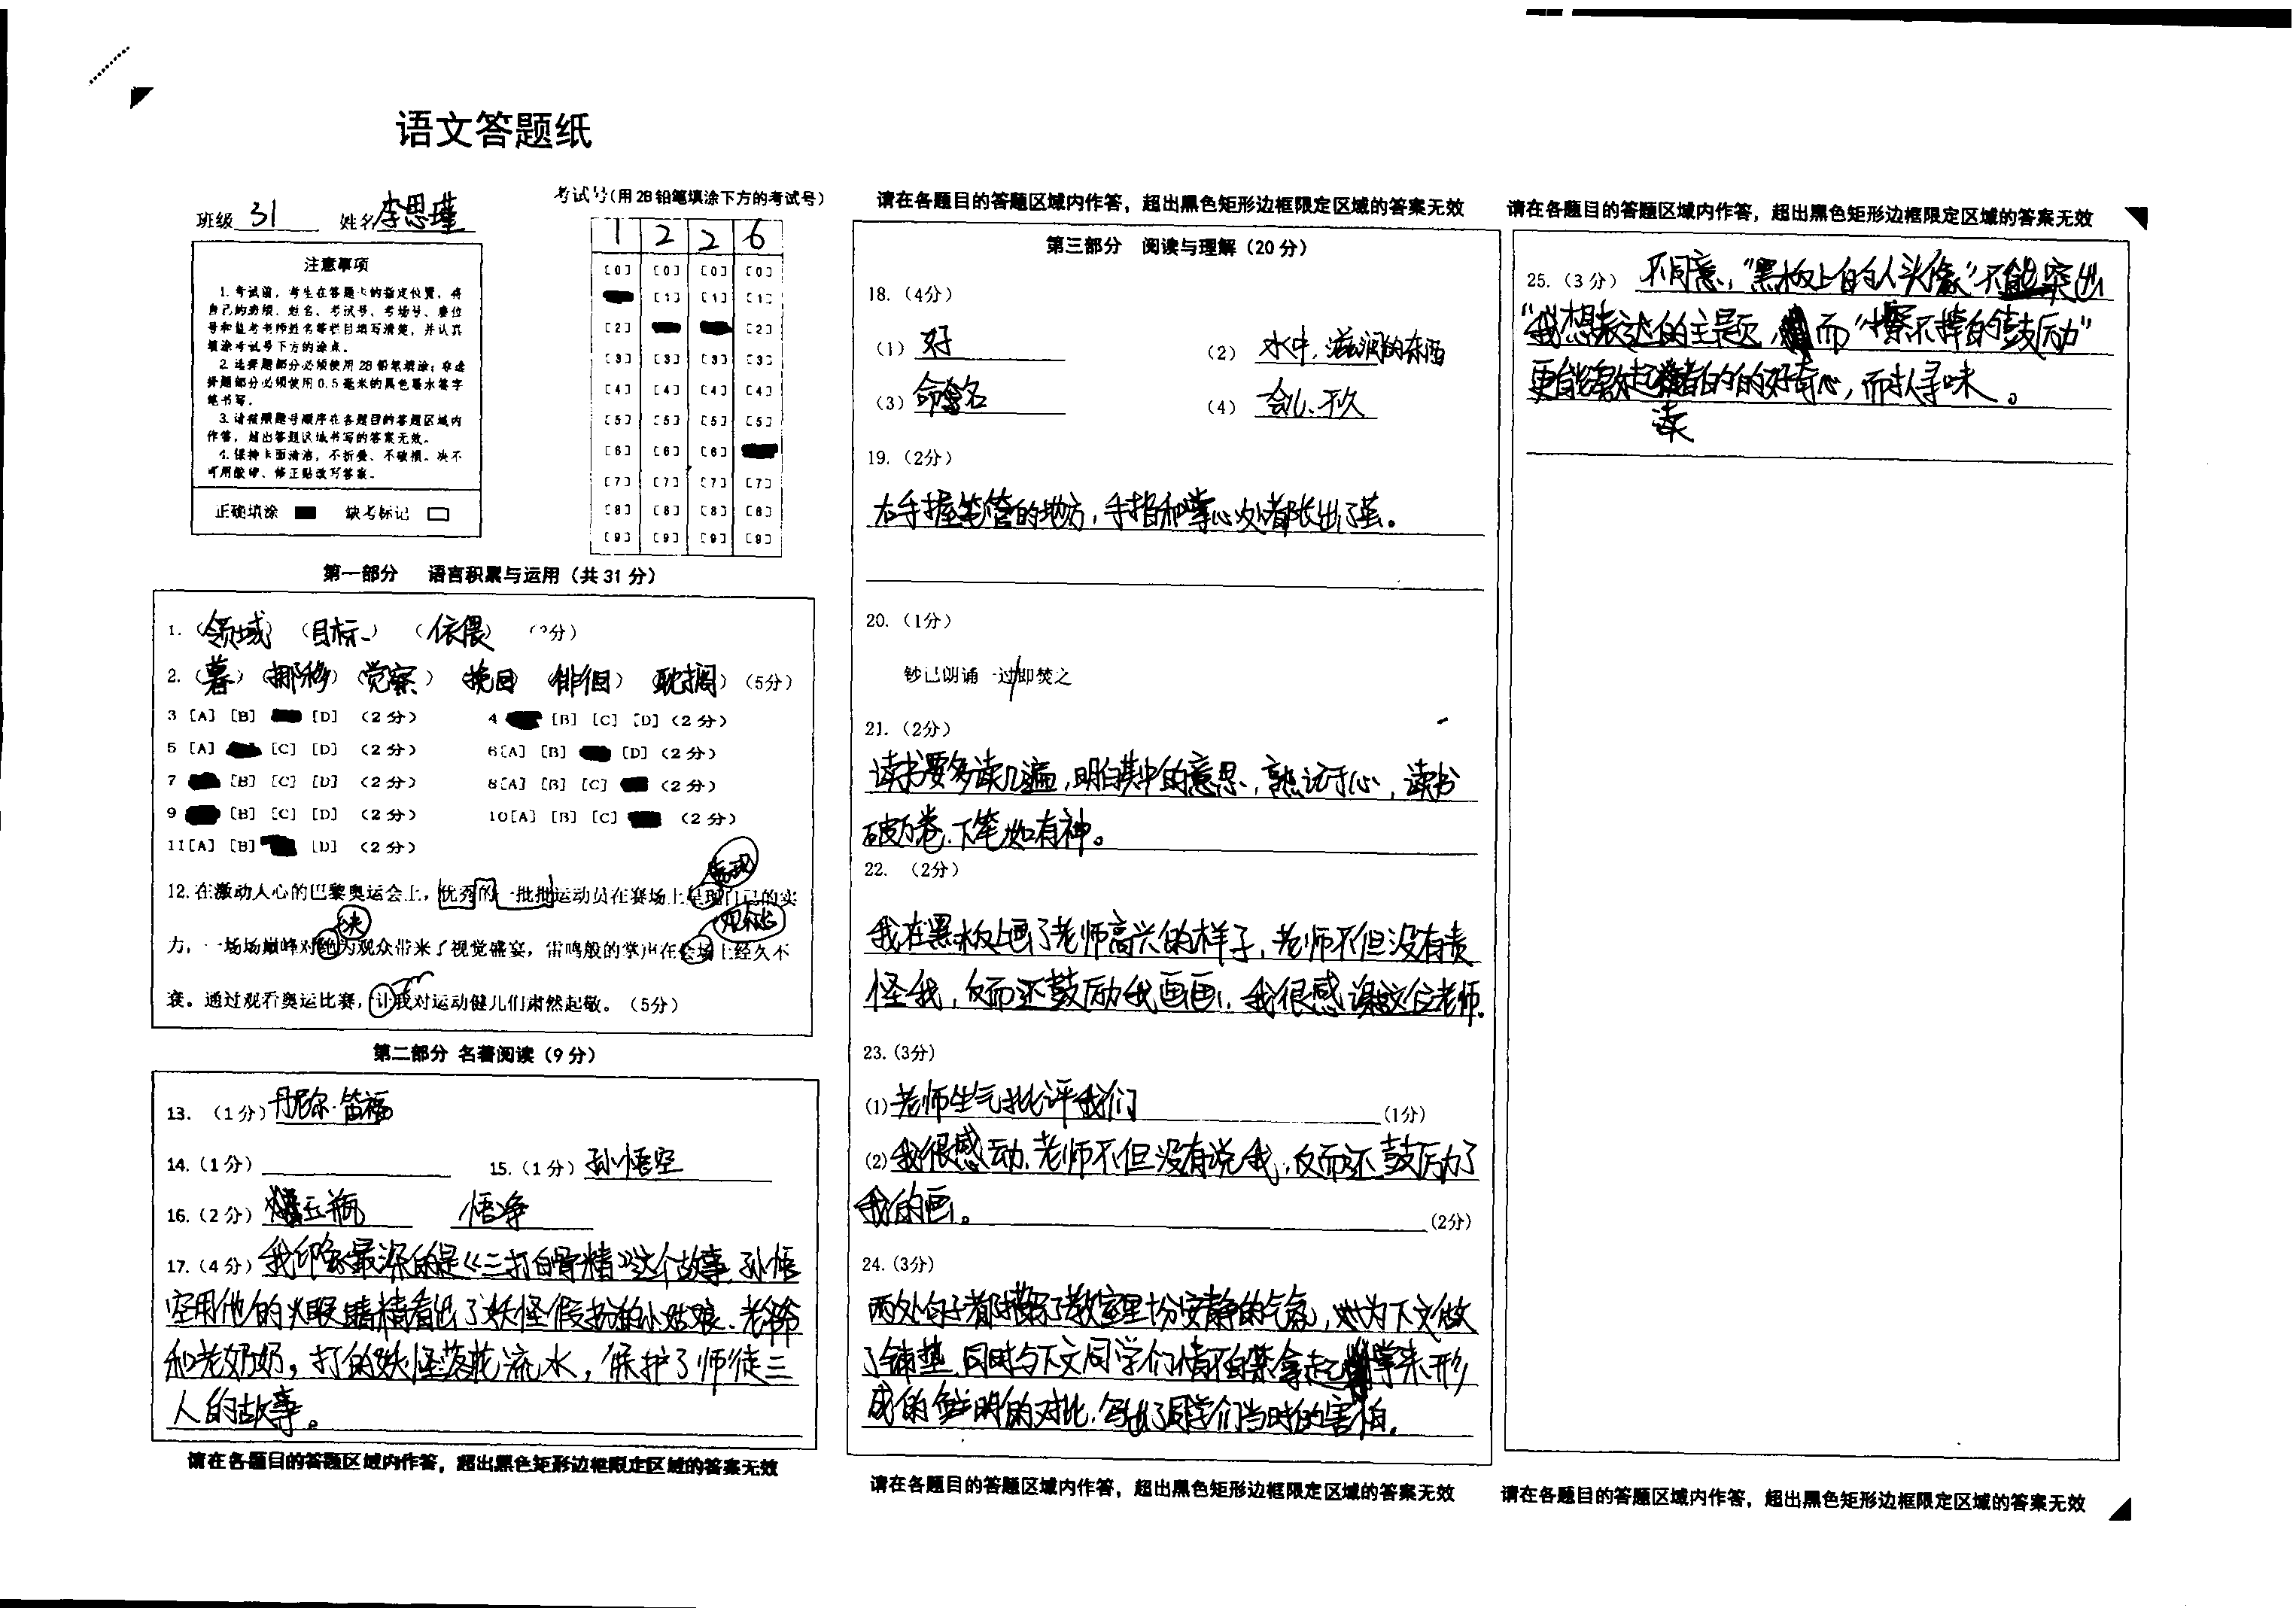 语文答题纸
班级 31 姓名 李思瑾
考试号(用2B铅笔填涂下方的考试号)
1 2 2 6
[0] [0] [0] [0]
[1] [1] [1]
[2] [2]
[3] [3] [3] [3]
[4] [4] [4] [4]
[5] [5] [5] [5]
[6] [6] [6]
[7] [7] [7] [7]
[8] [8] [8] [8]
[9] [9] [9] [9]
注意事项
1.考试前,考生在答题卡的指定位置,将
自己的班级、姓名、考试号、考场号、座位
号和监考老师姓名等栏目填写清楚,并认真
填涂考试号下方的涂点。
2.选择题部分必须使用2B铅笔填涂;非选
择题部分必须使用0.5毫米的黑色墨水签字
笔书写。
3.请按照题号顺序在各题目的答题区域内
作答,超出答题区域书写的答案无效。
4.保持卡面清洁,不折叠、不破损。决不
可用胶带、修正贴改写答案。
正确填涂 缺考标记
第一部分 语言积累与运用(共31分)
1.(领域)(目标)(依偎)
2.(暮)(挪移)(觉察)(挽回)(徘徊)(耽搁)(5分)
3 [A] [B] [D] (2分) 4 [B] [C] [D] (2分)
5 [A] [C] [D] (2分) 6 [A] [B] [D] (2分)
7 [B] [C] [D] (2分) 8 [A] [B] [C] (2分)
9 [B] [C] [D] (2分) 10 [A] [B] [C] (2分)
11 [A] [B] [D] (2分)
12.在激动人心的巴黎奥运会上,优秀的一批批运动员在赛场上呈现自己的实
决
力,一场场巅峰对绝为观众带来了视觉盛宴,雷鸣般的掌声在会场上经久不
衰。通过观看奥运比赛,让我对运动健儿们肃然起敬。(5分)
第二部分 名著阅读(9分)
13.(1分)丹尼尔·笛福
14.(1分) 15.(1分)孙悟空
16.(2分) 玉瓶 悟净
17.(4分)我印象最深的是《三打白骨精》这个故事.孙悟
空用他的火眼睛精看出了妖怪假扮的小姑娘、老爷爷
和老奶奶,打的妖怪落花流水,保护了师徒三
人的故事。
请在各题目的答题区域内作答,超出黑色矩形边框限定区域的答案无效
请在各题目的答题区域内作答,超出黑色矩形边框限定区域的答案无效
第三部分 阅读与理解(20分)
18.(4分)
(1)好 (2)水中,滋润的东西
(3)命名 (4)会儿、不久
19.(2分)
右手握笔管的地方,手指和掌心处都长出了茧。
20.(1分)
钞已朗诵一过/即焚之
21.(2分)
读书要多读几遍,明白其中的意思,熟记于心,读书
破万卷.下笔如有神。
22.(2分)
我在黑板上画了老师高兴的样子,老师不但没有责
怪我,反而还鼓励我画画,我很感谢这位老师.
23.(3分)
(1)老师生气批评我们(1分)
(2)我很感动.老师不但没有说我,反而还鼓励了
我的画。(2分)
24.(3分)
两处句子都描写了教室里十分安静的气氛,为下文做
了铺垫.同时与下文同学们情不自禁拿起掌来形
成的鲜明的对比.写出了同学们当时的害怕.
请在各题目的答题区域内作答,超出黑色矩形边框限定区域的答案无效
请在各题目的答题区域内作答,超出黑色矩形边框限定区域的答案无效
25.(3分)不同意,“黑板上的人头像”不能突出
“我想表达的主题,而“擦不掉的鼓励”
更能激起读者的的好奇心,而扒寻味。
请在各题目的答题区域内作答,超出黑色矩形边框限定区域的答案无效